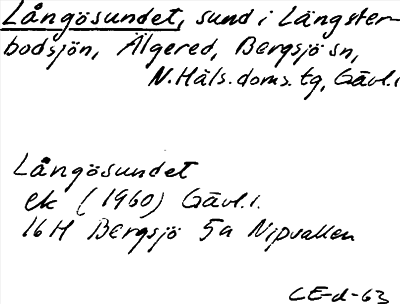 Långösundet, sund i Längster-
bodsjön, Älgered, Bergsjö sn,
N. Häls. doms. tg, Gävl. l
Långösundet
ek (1960) Gävl. l.
16H Bergsjö 5a Nipvallen
CE-d-63